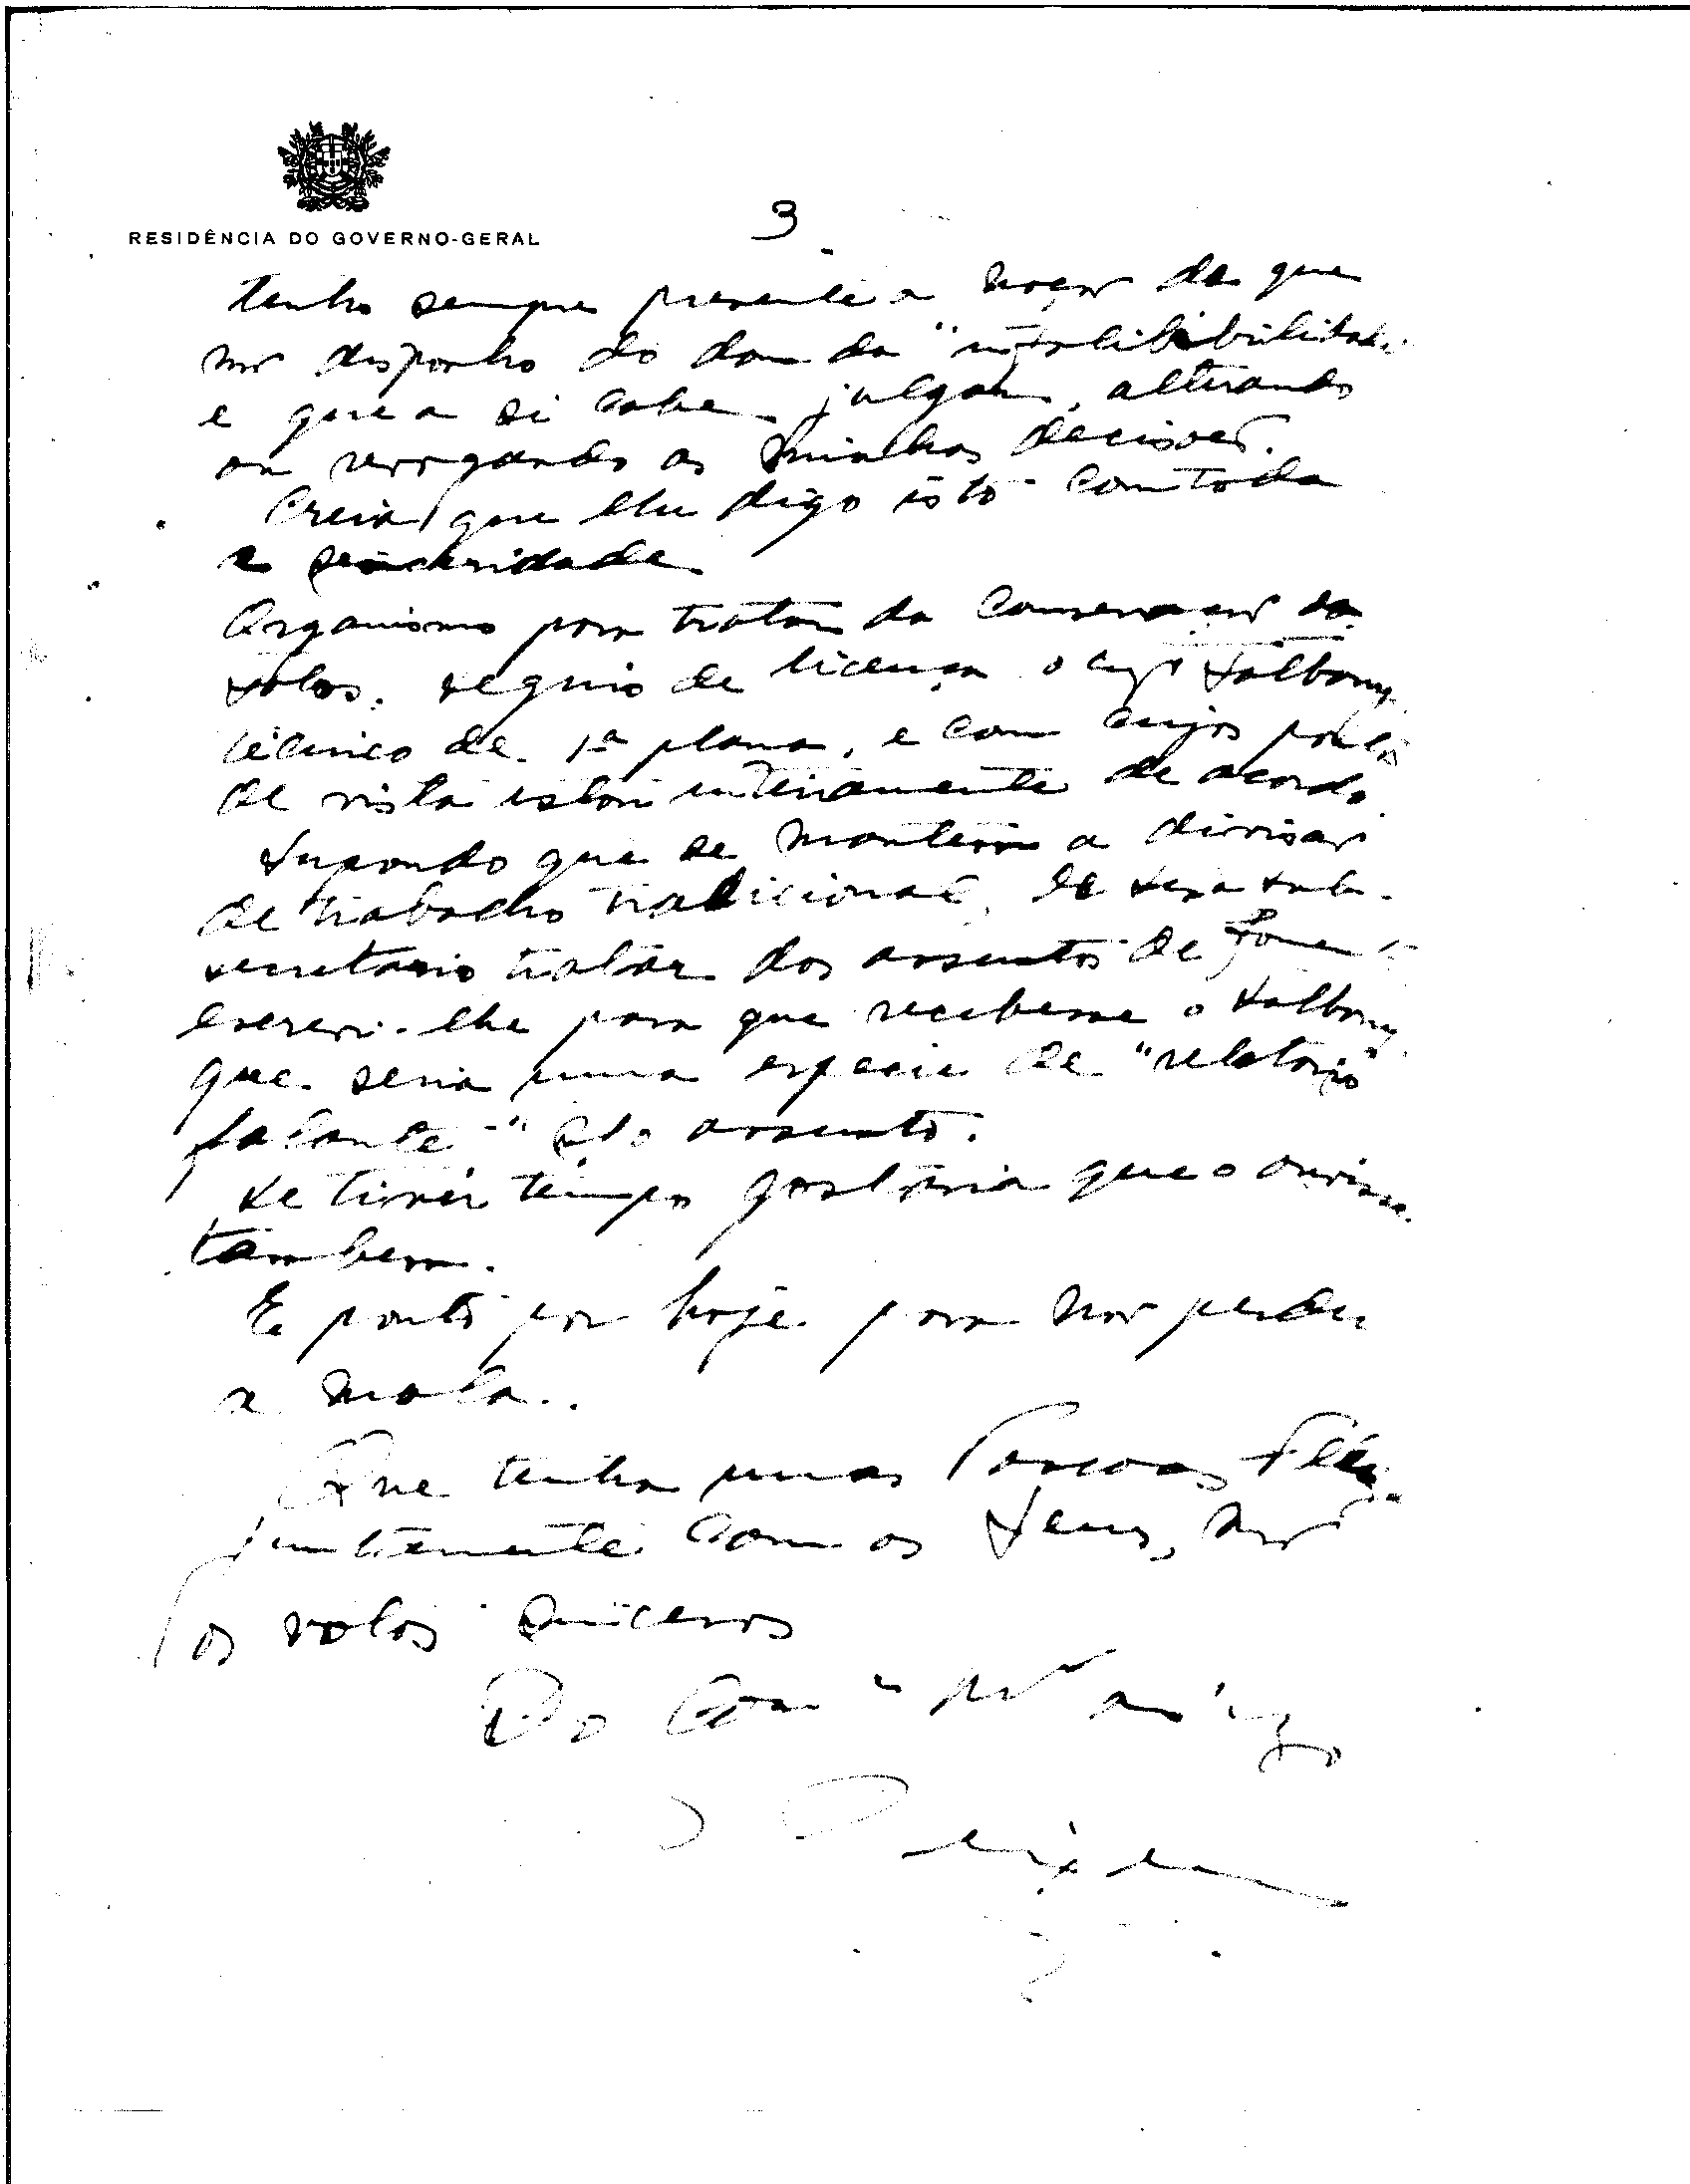 RESIDÊNCIA DO GOVERNO-GERAL
3
tenho sempre presente a noção de que
não disponho do dom da "infalibibilidade
e que a si cabe julgar, alterando
ou revogando as minhas decisões.
Creia que lhe digo isto com toda
a sinceridade
Organismo para tratar da conservação do
solos. seguio de licença o engº
técnico de 1ª plana, e com cujos pontos
de vista estou inteiramente de acordo.
Supondo que se manteria a divisão
de trabalho tradicional, de ser o sub-
secretario tratar dos assuntos de
escrevi-lhe para que recebesse o
que seria uma especie de "relatorio
falante" do assunto.
Se tiver tempo gostaria que o ouvisse
tambem.
E ponto por hoje para não perder
a mala..
Que tenha umas Pascoas
juntamente com os Seus, são
os votos sinceros
Do amigo